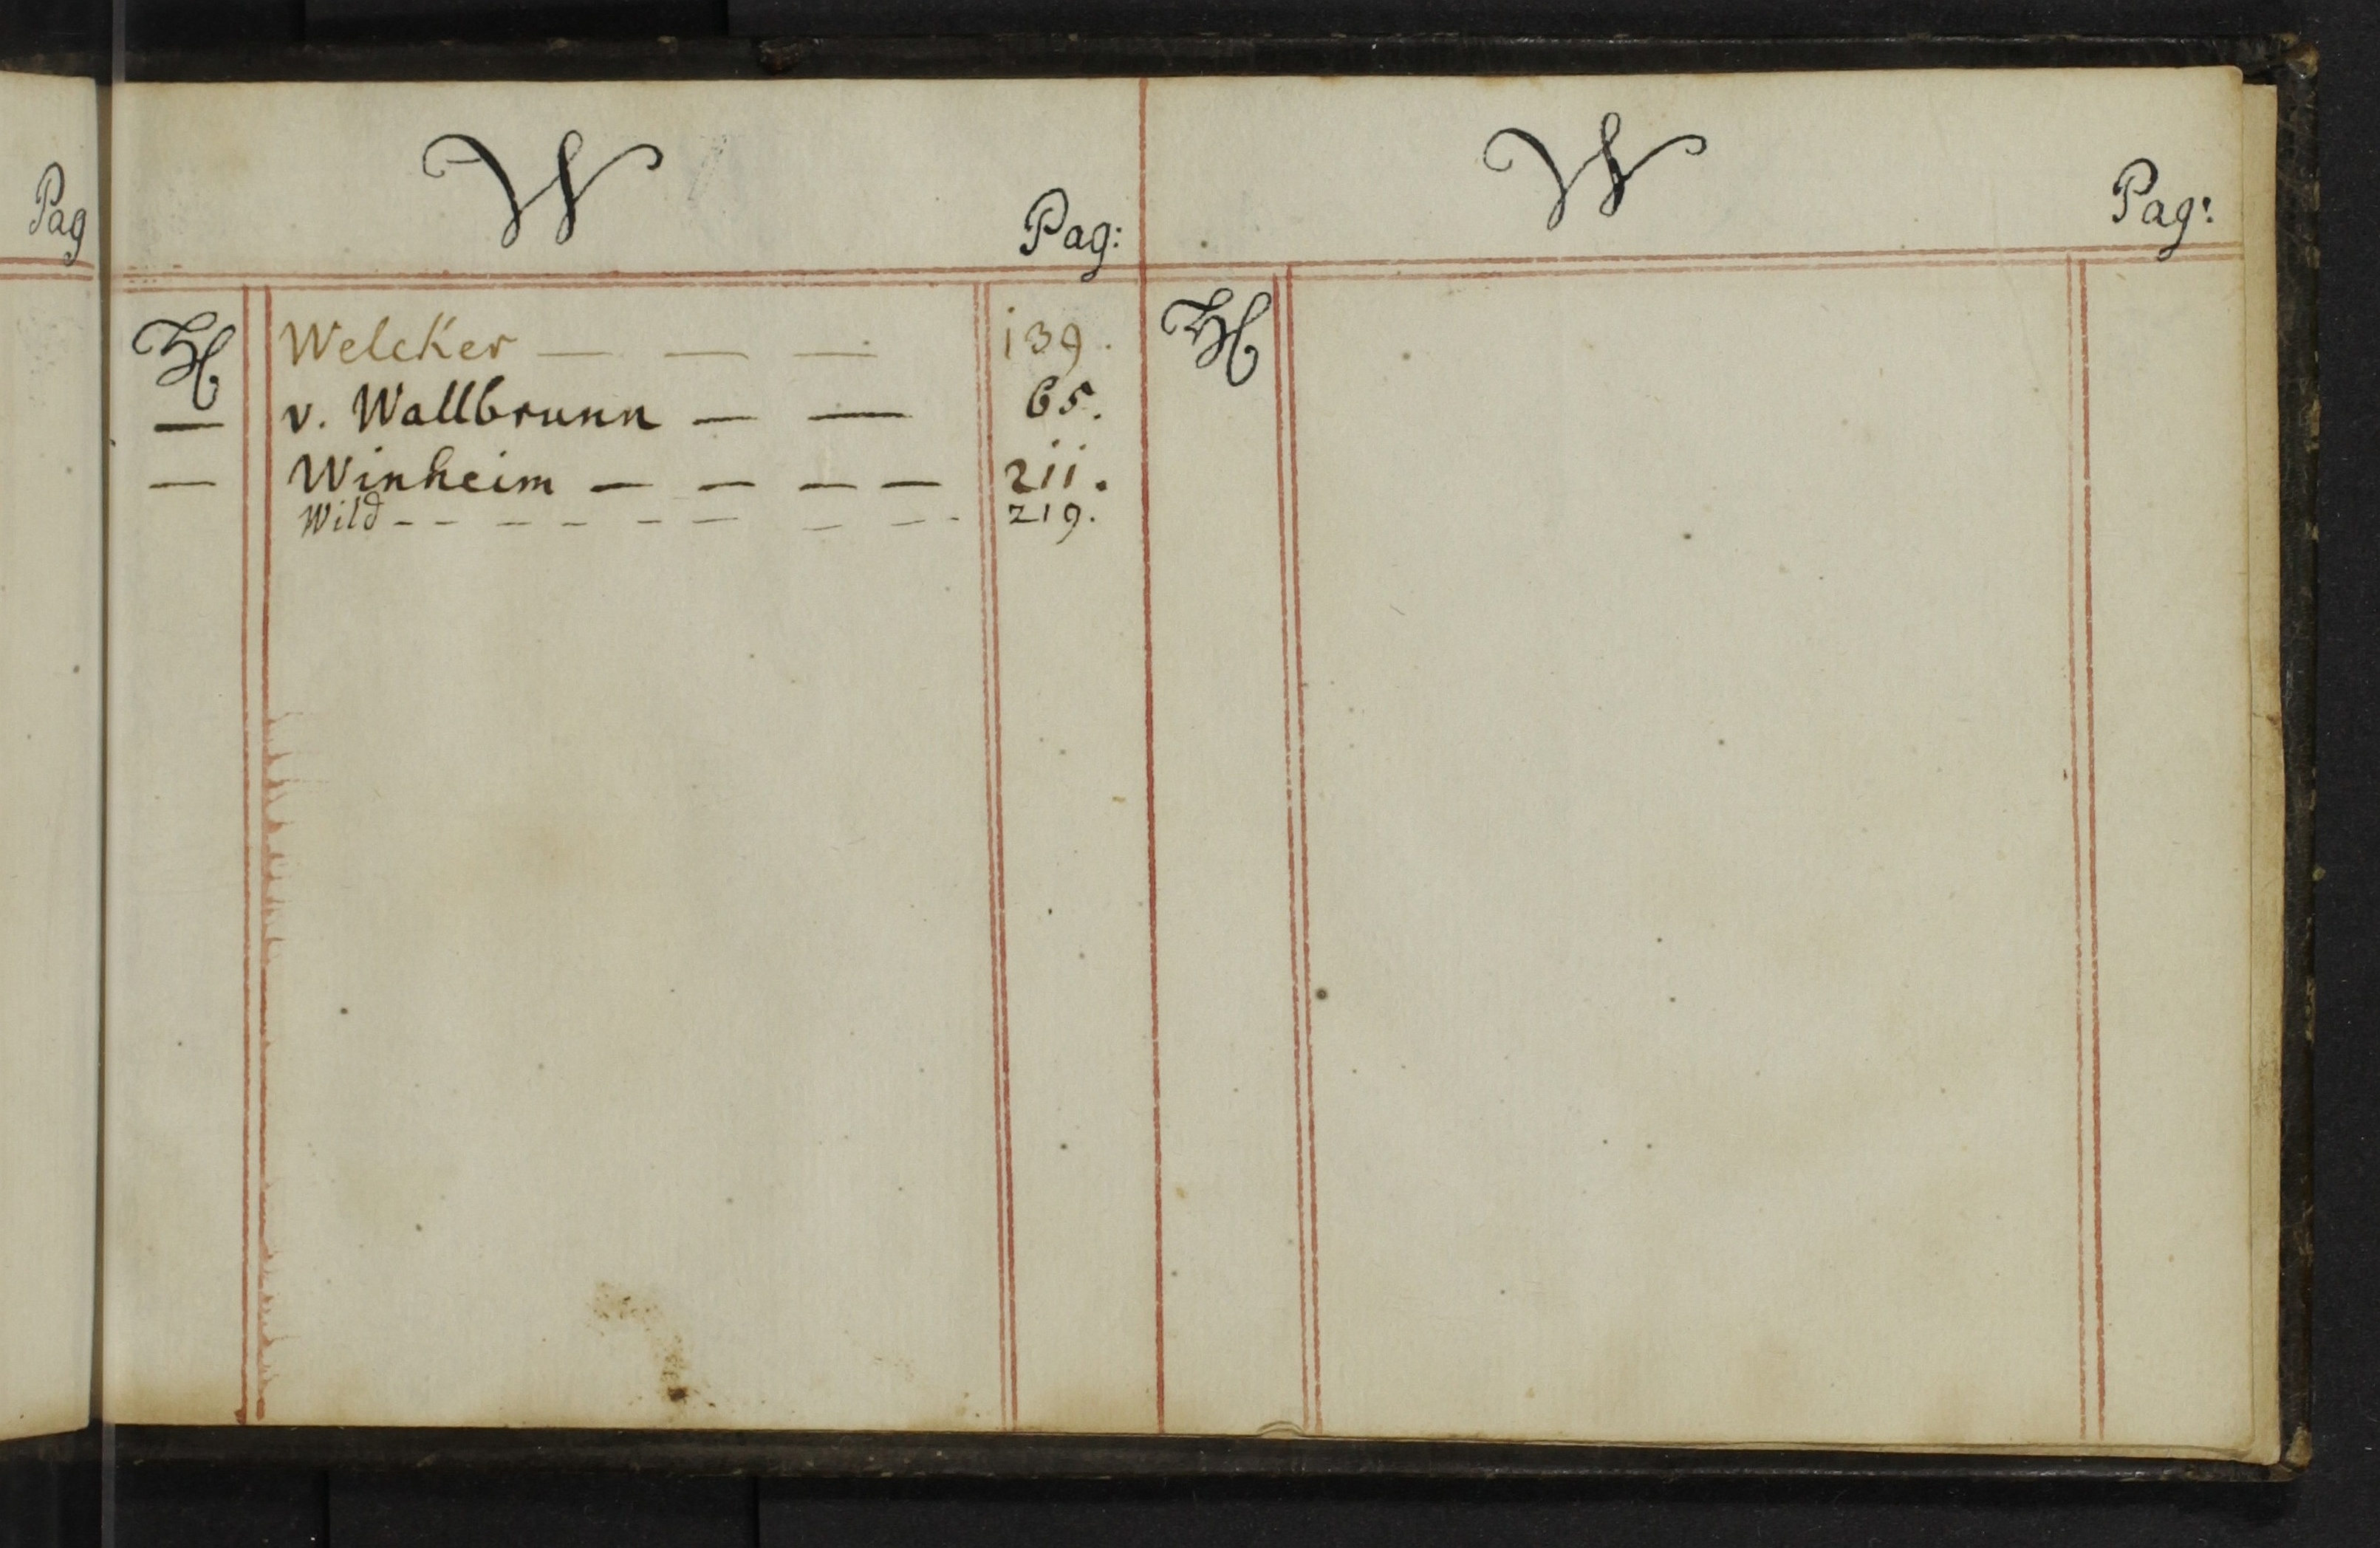 Pag
W
Pag:
H Welcker — — — 139.
— v. Wallbrunn — — 65.
— Winheim — — — — 211.
Wild - - - - - - - - - 219.
W
Pag:
H